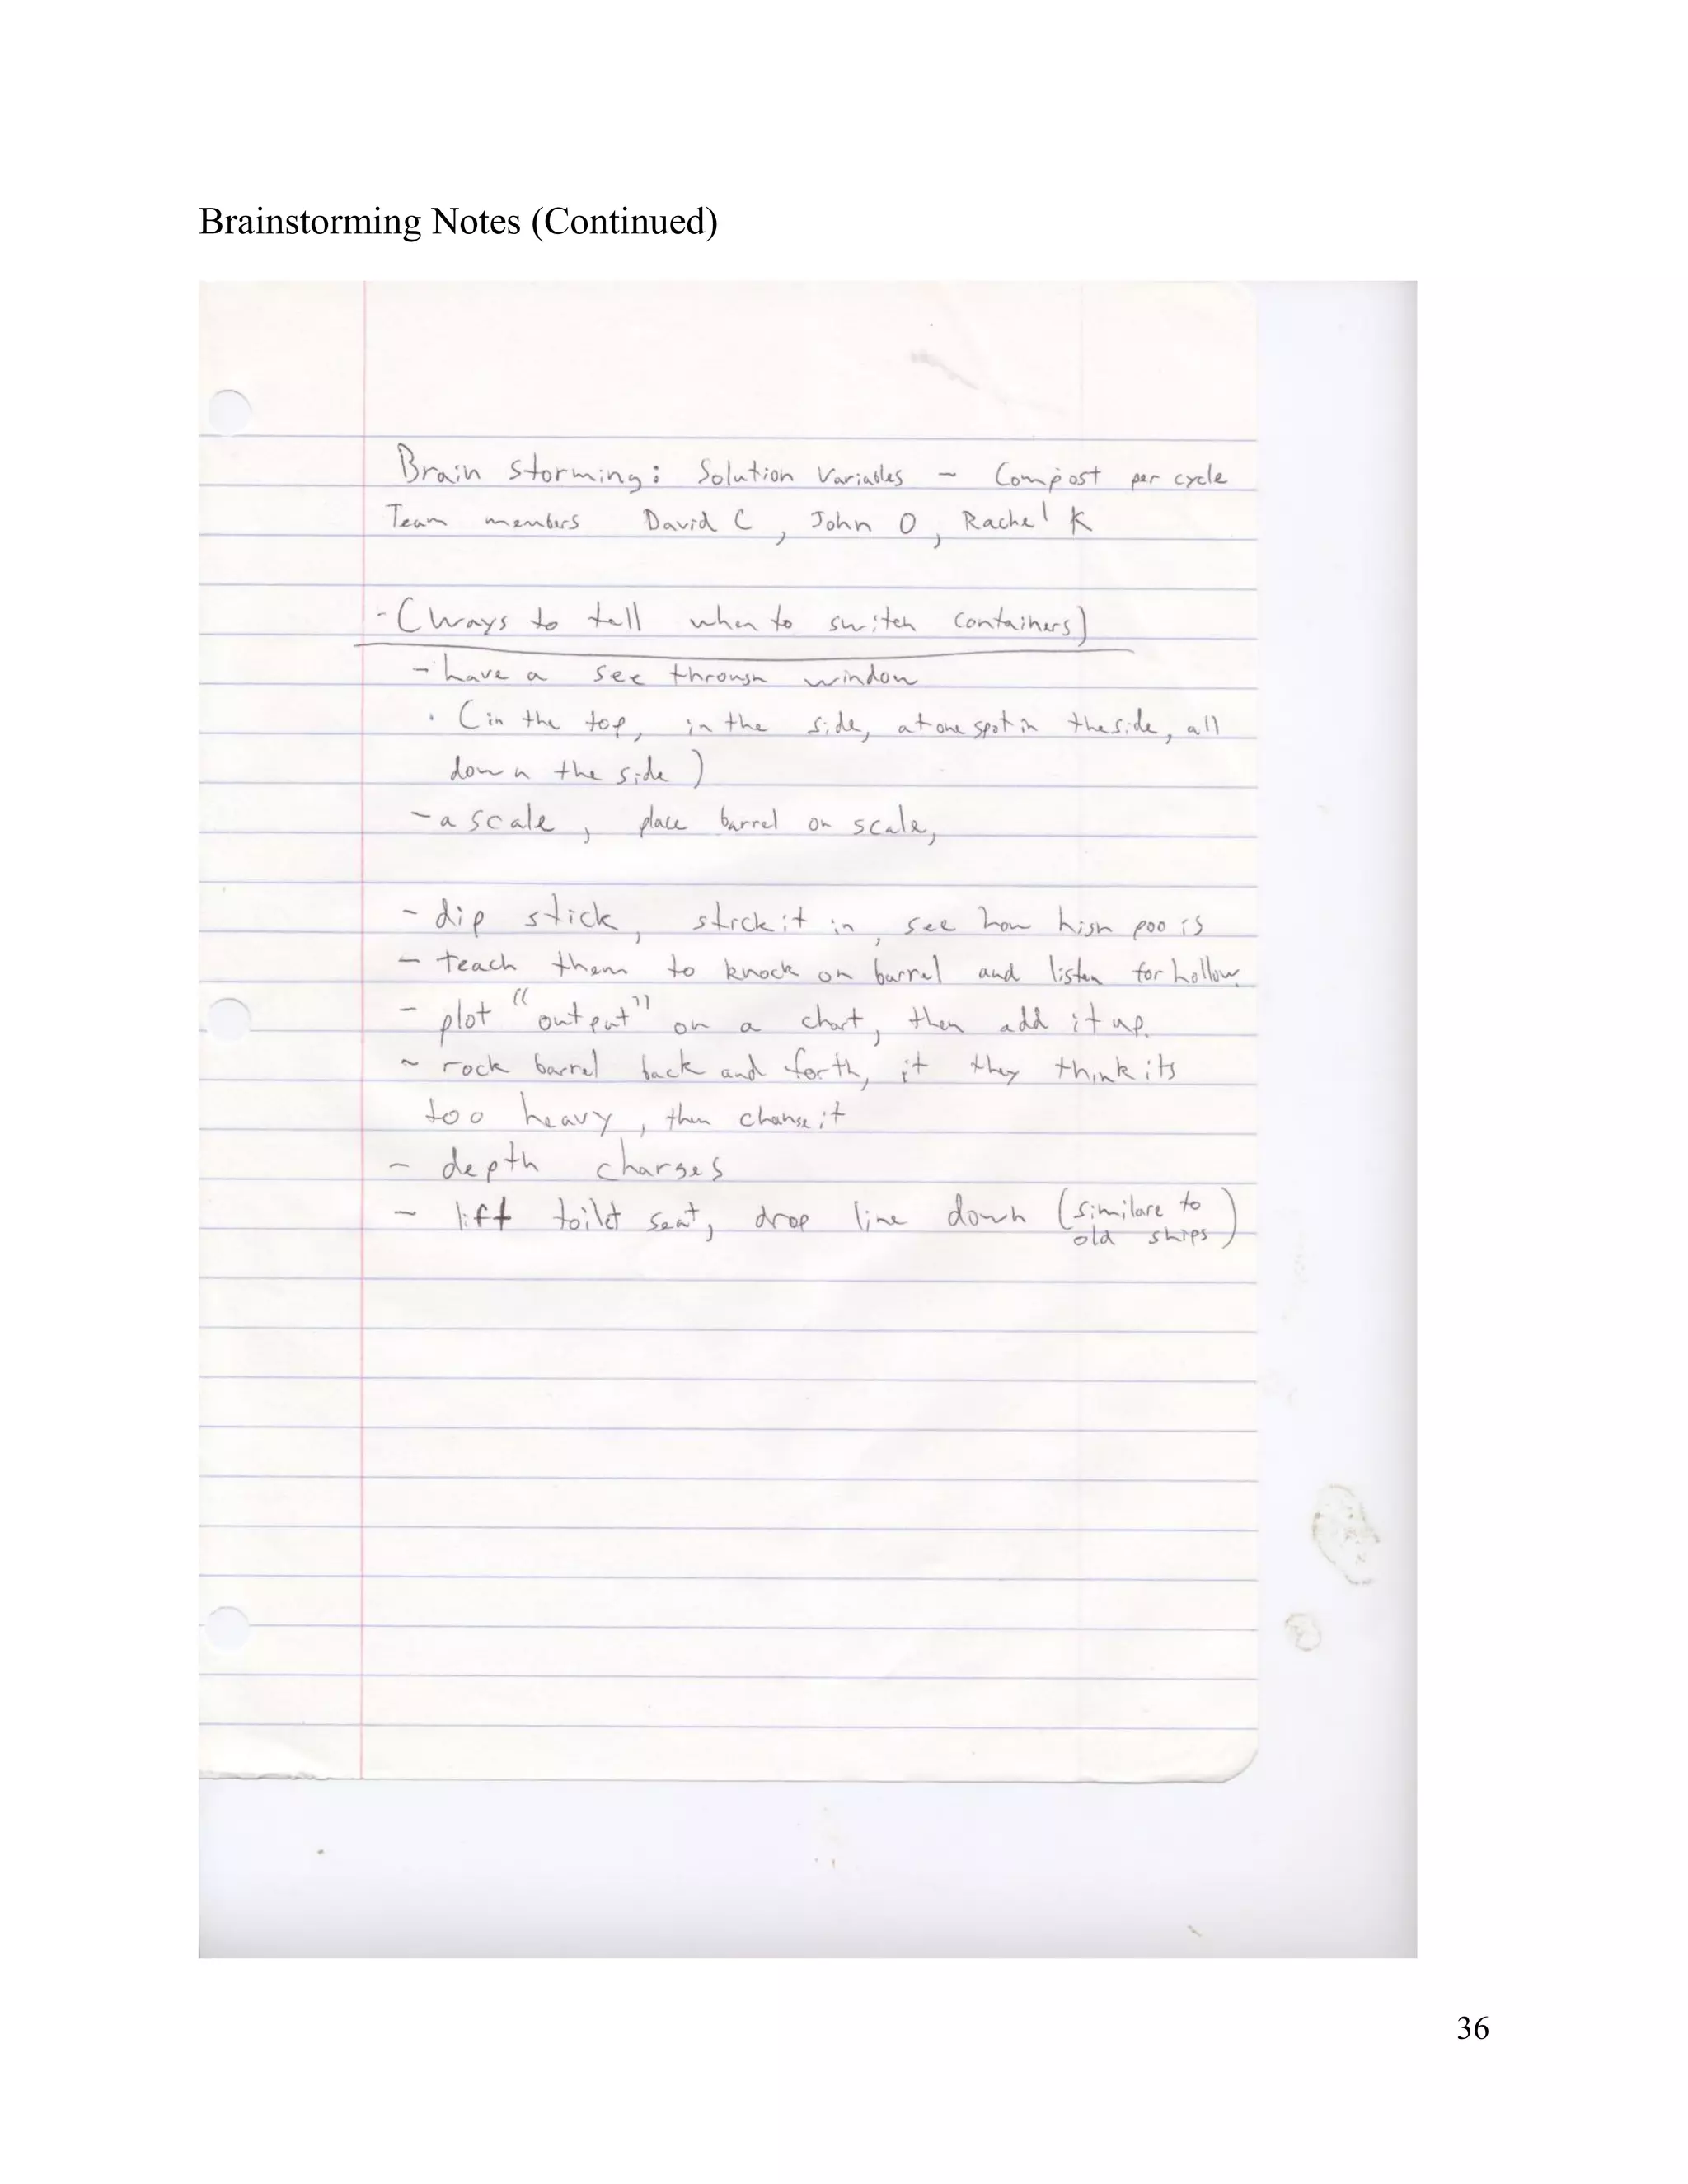 Brainstorming Notes (Continued)
Brain storming: Solution Variables - Compost per cycle
Team members David C, John O, Rachel K
- (Ways to tell when to switch containers)
- have a see through window
· (in the top, in the side, at one spot in the side, all
down the side)
- a scale, place barrel on scale,
- dip stick, stick it in, see how high poo is
- teach them to knock on barrel and listen for hollow.
- plot "output" on a chart, then add it up.
~ rock barrel back and forth, if they think its
too heavy, then change it
- depth charges
- lift toilet seat, drop line down (similare to
old ships)
36